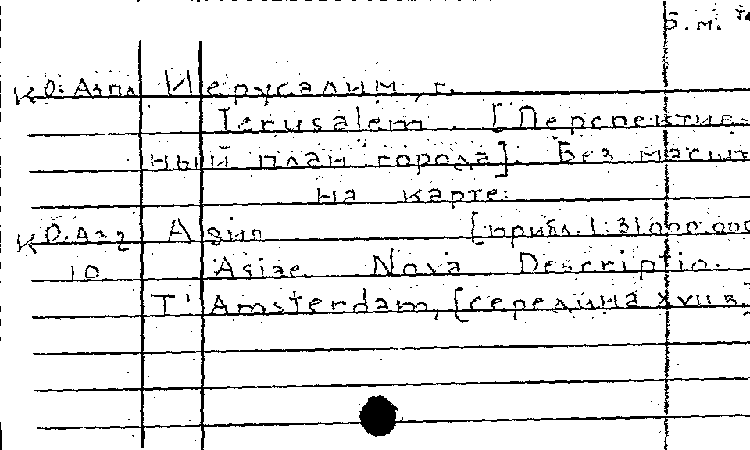 Б.м.
КО: Азпл Иерусалим, г.
Jerusalem. [Перспектив-
ный план города]. Без масшт
На карте:
КО. Аз2 Азия [прибл. 1:31000.000
10 Asiae Nova Descriptio.
Т' Amsterdam, [середина XVII в.]